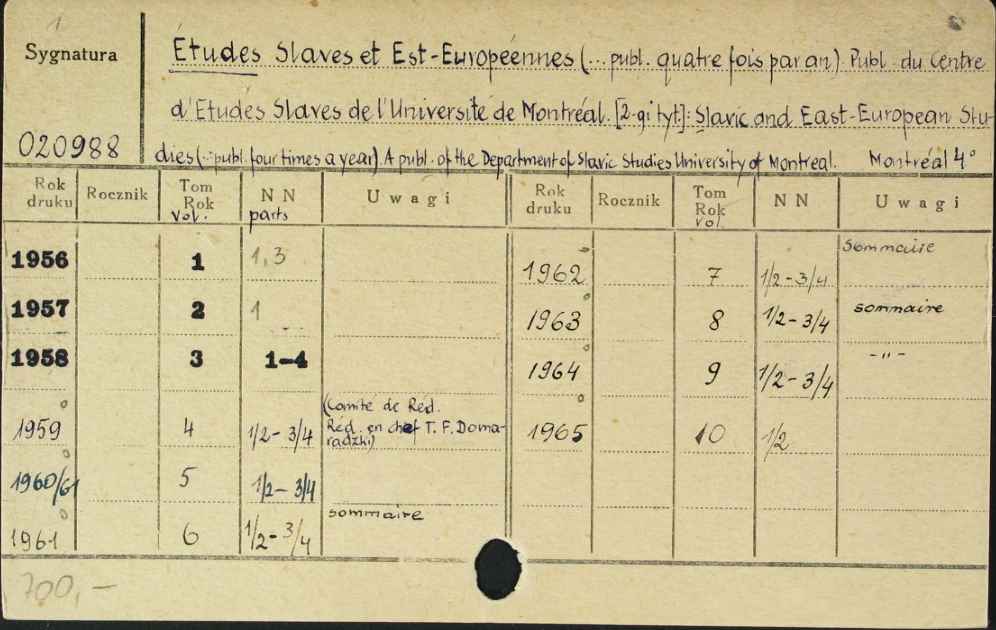 1
Sygnatura
Etudes Slaves et Est-Européennes (... publ. quatre fois par an). Publ. du Centre
d'Etudes Slaves de l'Université de Montréal. [2-gi tyt]: Slavic and East-European Stu-
020988
dies (... publ. four times a year). A publ. of the Department of Slavic Studies University of Montreal. Montréal 4°
Rok druku Rocznik Tom Rok vol. N N parts Uwagi Rok druku Rocznik Tom Rok vol. N N Uwagi
1956 1 1, 3 1962 7 1/2-3/4 sommaire
1957 2 1 1963 8 1/2-3/4 sommaire
1958 3 1-4 1964 9 1/2-3/4 -"-
1959 4 1/2-3/4 (Comité de Réd. Réd. en chef T. F. Doma-radzki) 1965 10 1/2
1960/61 5 1/2-3/4
1961 6 1/2-3/4 sommaire
700,-